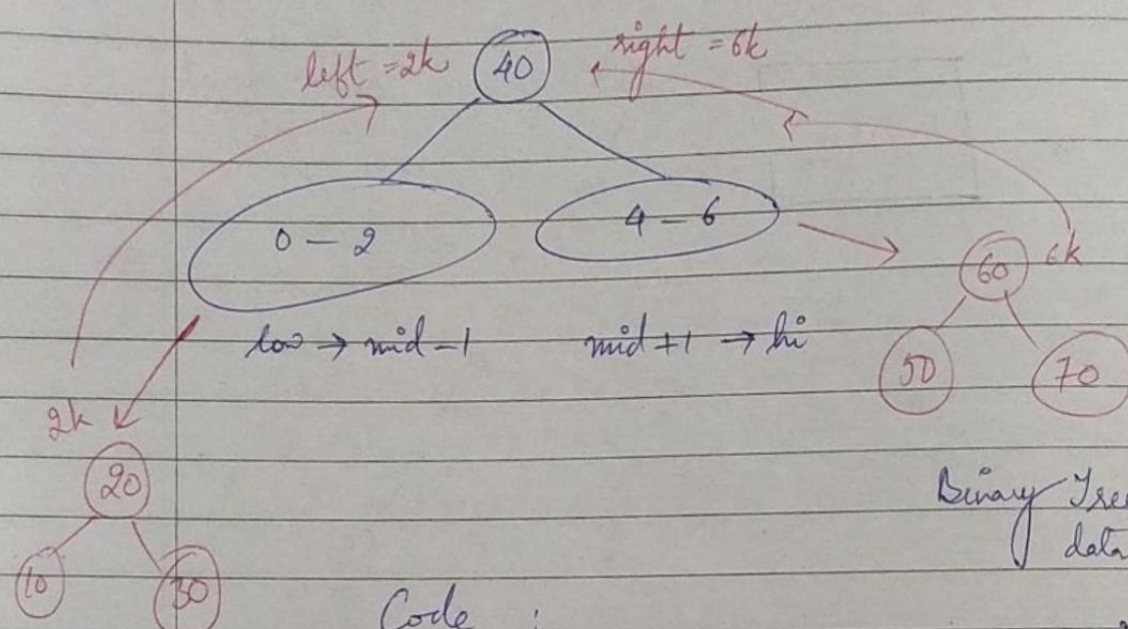 left = 2k 40 right = 6k
0 - 2 4 - 6
60 6k
low → mid - 1 mid + 1 → hi
50 70
2k
20
Binary Tree
data
10 30
Code :